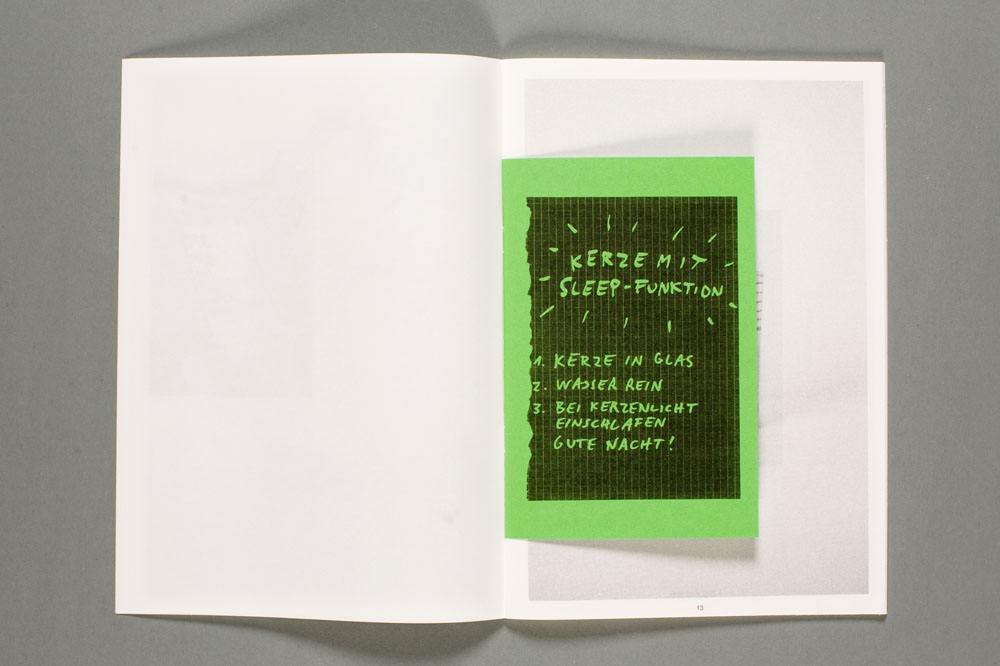 KERZE MIT
SLEEP-FUNKTION
1. KERZE IN GLAS
2. WASSER REIN
3. BEI KERZENLICHT
EINSCHLAFEN
GUTE NACHT!
13